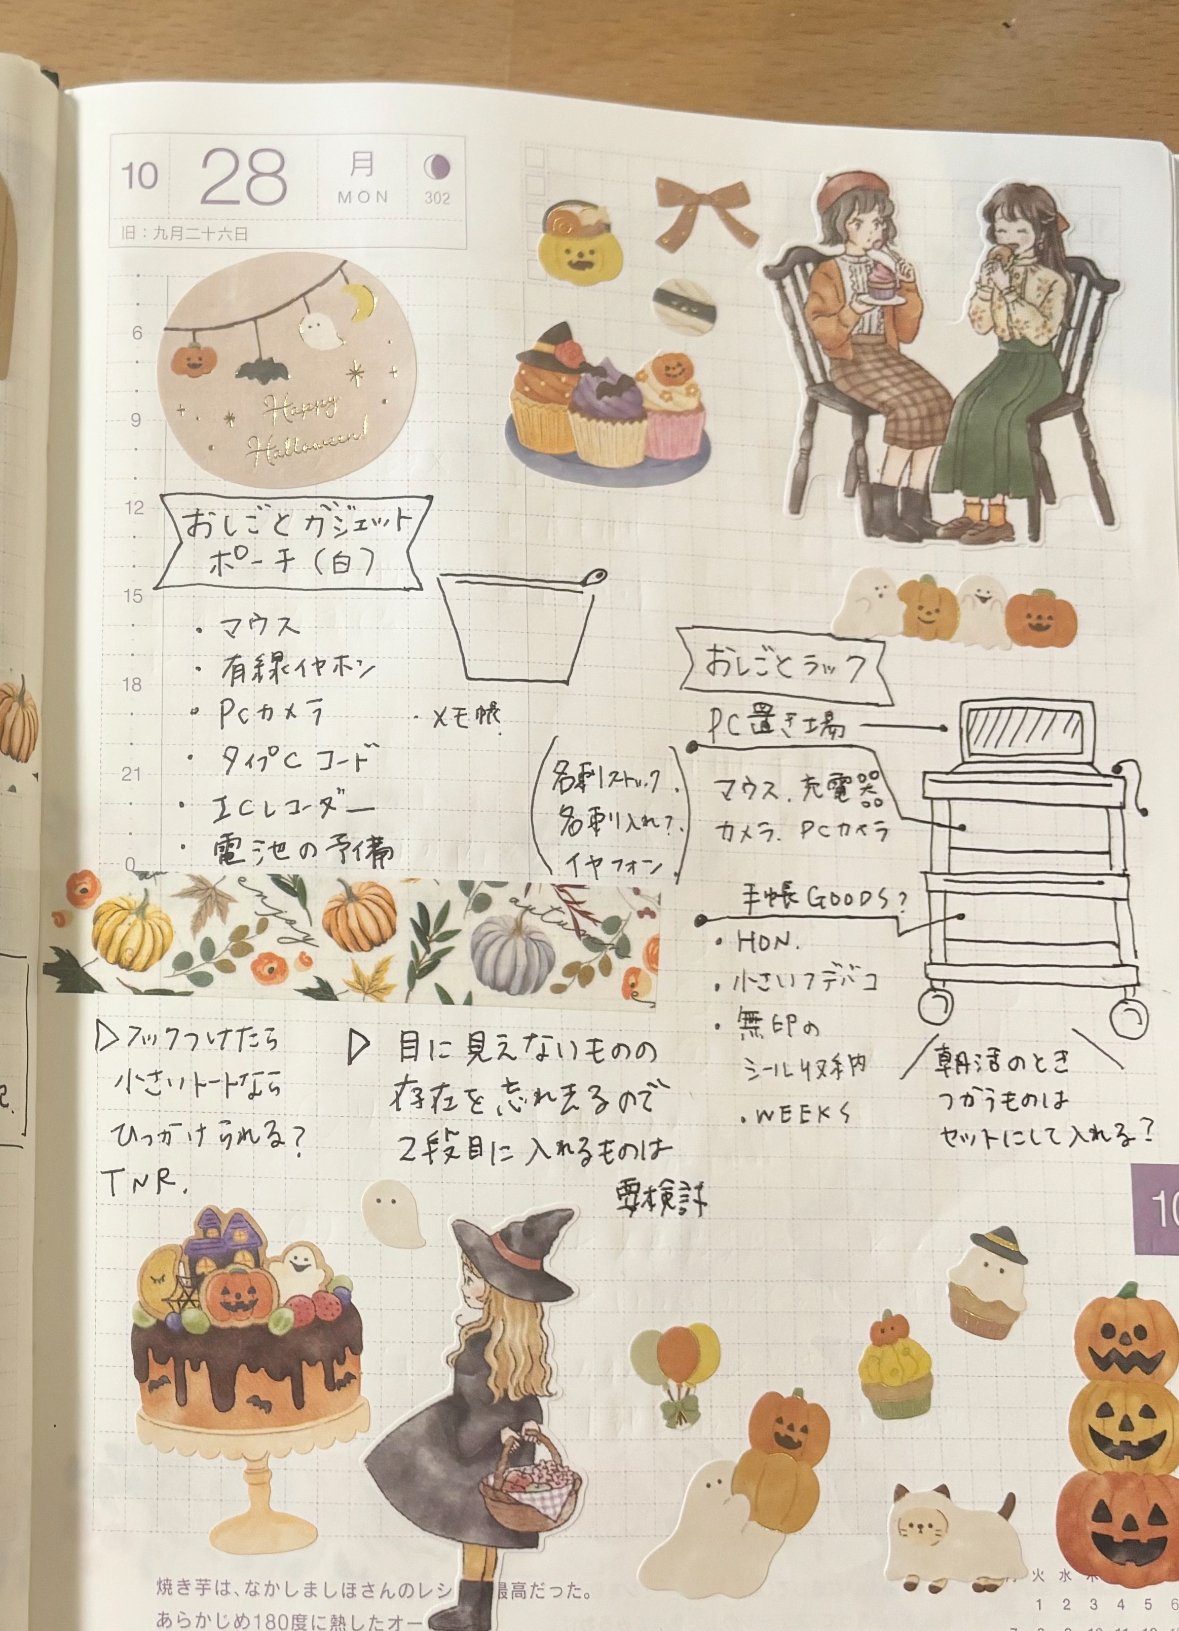 10
28
月
MON
302
旧：九月二十六日
6
9
12
15
18
21
0
Happy
Halloween!
おしごとガジェット
ポーチ（白）
・マウス
・有線イヤホン
・PCカメラ
・タイプCコード
・ICレコーダー
・電池の予備
・メモ帳
名刺ストック、
名刺入れ?、
イヤフォン
おしごとラック
PC置き場
マウス、充電器
カメラ、PCカメラ
手帳GOODS?
・HON.
・小さいフデバコ
・無印の
シール収納
・WEEKS
朝活のとき
つかうものは
セットにして入れる?
enjoy
autumn
▷フックつけたら
小さいトートなら
ひっかけられる?
TNR.
▷目に見えないものの
存在を忘れ去るので
2段目に入れるものは
要検討
10
焼き芋は、なかしましほさんのレシ
最高だった。
あらかじめ180度に熱したオー
火 水
1 2 3 4 5 6